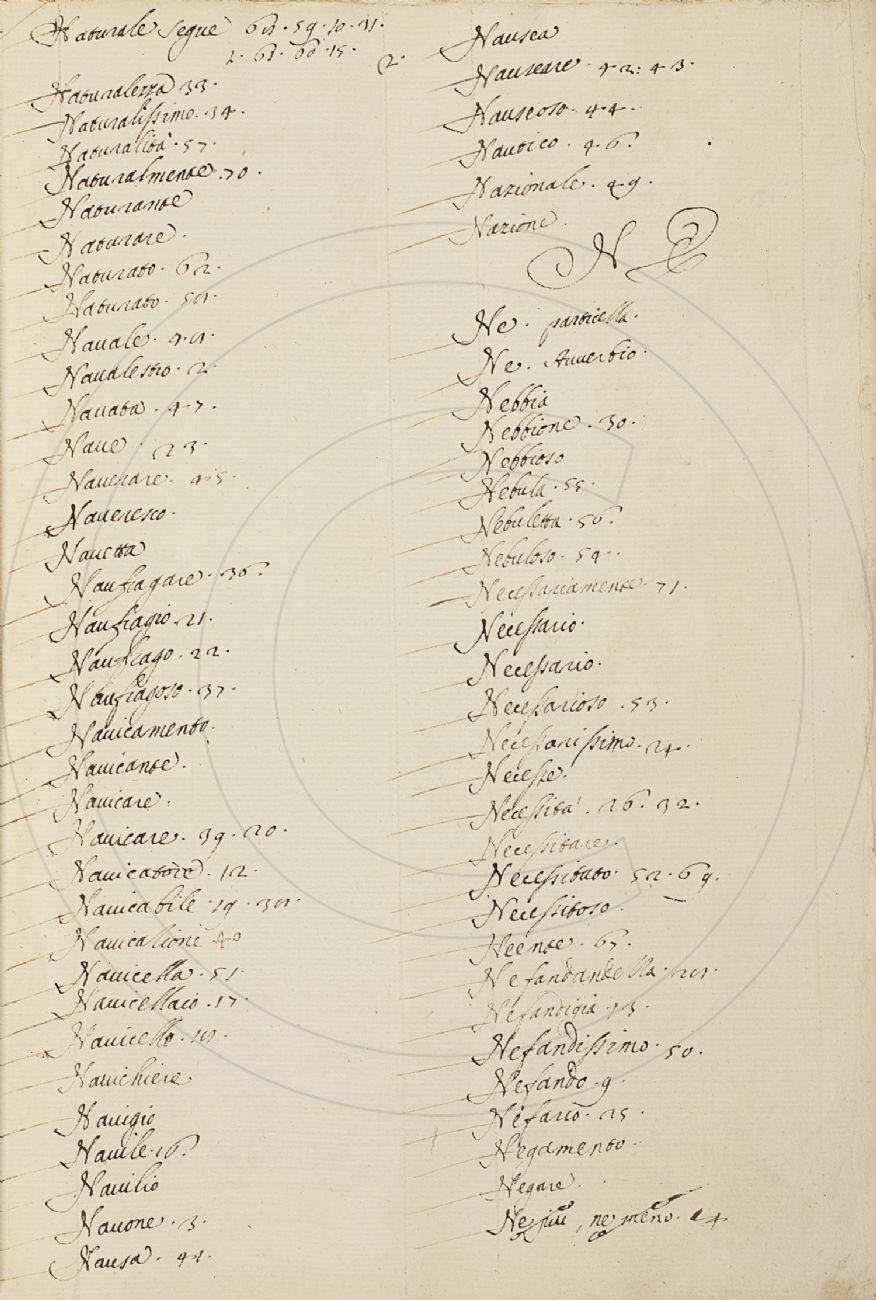 Naturale segue 61. 59. 10. 31.
2. 63. 60. 15.
Naturalezza 33.
Naturalissimo. 34.
Naturalità. 57.
Naturalmente. 70.
Naturante
Naturare.
Naturato. 62.
Naturato.
Nauale.
Naualestro. 2.
Nauata. 47.
Naue. 23.
Nauereare. 45.
Naueresco.
Nauetta
Naufragare. 36.
Naufragio. 21.
Naufrago. 22.
Naufragoso. 37.
Nauicamento.
Nauicante.
Nauicare.
Nauicare. 39. 20.
Nauicatore. 12.
Nauicabile. 19.
Nauicatione 40
Nauicella. 51.
Nauicellaio. 17.
Nauicello.
Nauichiere
Nauigio
Nauile. 16.
Nauilio
Nauone. 3.
Nausa. 41.
2.
Nausea
Nauseare. 42: 43.
Nauseoso. 44.
Nautico. 46.
Nazionale. 49.
Nazione.
N E
Ne. particella.
Ne. Auuerbio.
Nebbia
Nebbione. 30.
Nebbioso
Nebula. 55.
Nebuletta. 56.
Nebuloso. 54.
Necessariamente. 71.
Necessario.
Necessario.
Necessarioso. 53.
Necessarissimo. 24.
Necesse.
Necessità. 26. 32.
Necessitare.
Necessitato. 52. 69.
Necessitoso.
Neente. 67.
Nefandandella.
Nefandigia. 13.
Nefandissimo. 50.
Nefando. 9.
Nefario. 25.
Negamento.
Negare.
Ne più, ne meno. 14